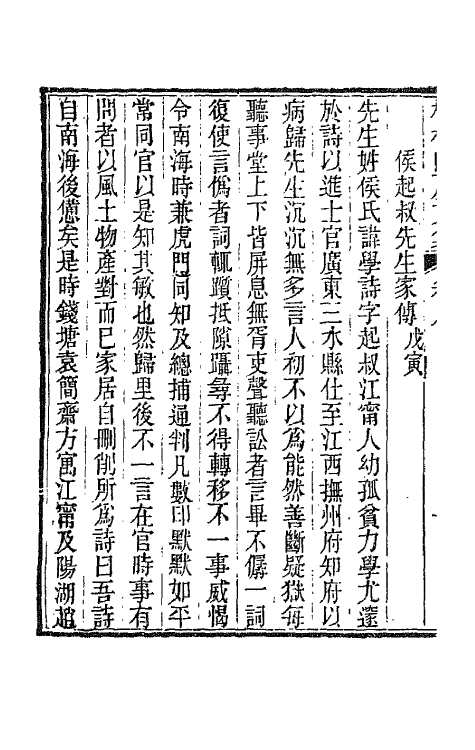 侯起叔先生家傳戊寅
先生姓侯氏諱學詩字起叔江甯人幼孤貧力學尤邃
於詩以進士官廣東三水縣仕至江西撫州府知府以
病歸先生沉沉無多言人初不以爲能然善斷疑獄每
聽事堂上下皆屏息無胥吏聲聽訟者言畢不儳一詞
復使言僞者詞輒躓抵隙躡尋不得轉移不一事威愒
令南海時兼虎門同知及總捕通判凡數印默默如平
常同官以是知其敏也然歸里後不一言在官時事有
問者以風土物產對而已家居自刪削所爲詩曰吾詩
自南海後憊矣是時錢塘袁簡齋方寓江甯及陽湖趙